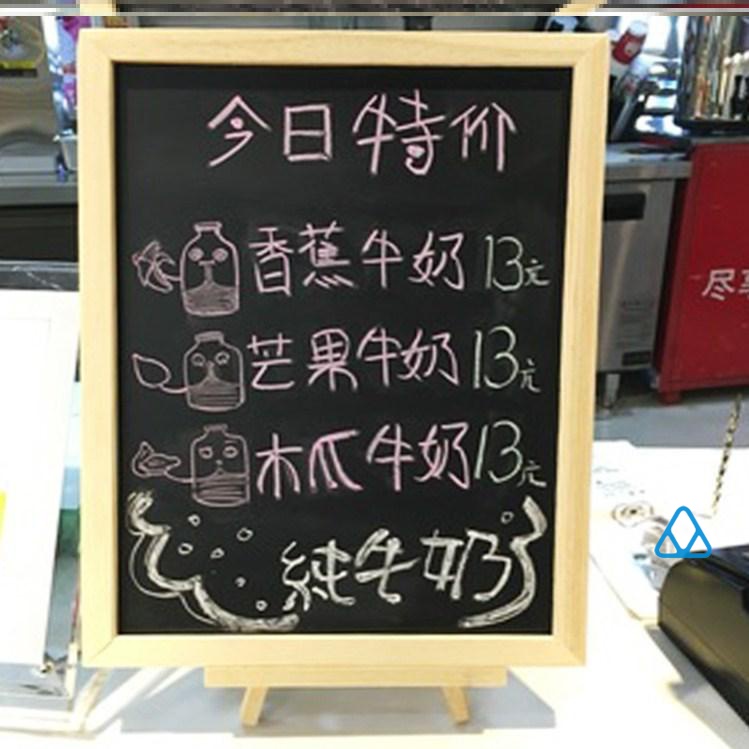 今日特价
香蕉牛奶 13元
芒果牛奶 13元
木瓜牛奶 13元
純牛奶
尽